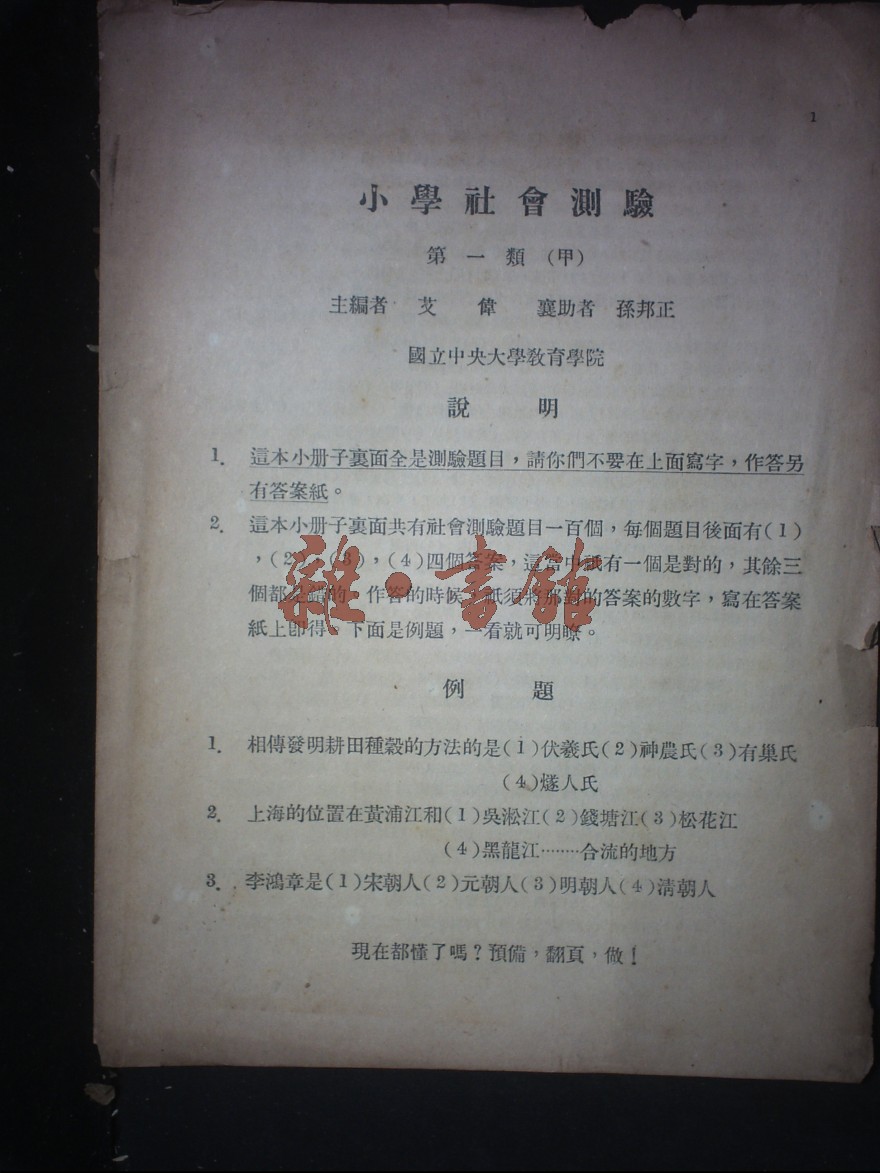 1
小學社會測驗
第一類（甲）
主編者 艾偉 襄助者 孫邦正
國立中央大學教育學院
說明
1. 這本小册子裏面全是測驗題目，請你們不要在上面寫字，作答另
有答案紙。
2. 這本小册子裏面共有社會測驗題目一百個，每個題目後面有(1)
，(2)，(3)，(4)四個答案，這當中祇有一個是對的，其餘三
個都是錯的。作答的時候，祇須將那對的答案的數字，寫在答案
紙上即得。下面是例題，一看就可明瞭。
雜·書館
例題
1. 相傳發明耕田種穀的方法的是(1)伏羲氏(2)神農氏(3)有巢氏
(4)燧人氏
2. 上海的位置在黃浦江和(1)吳淞江(2)錢塘江(3)松花江
(4)黑龍江………合流的地方
3. 李鴻章是(1)宋朝人(2)元朝人(3)明朝人(4)清朝人
現在都懂了嗎？預備，翻頁，做！